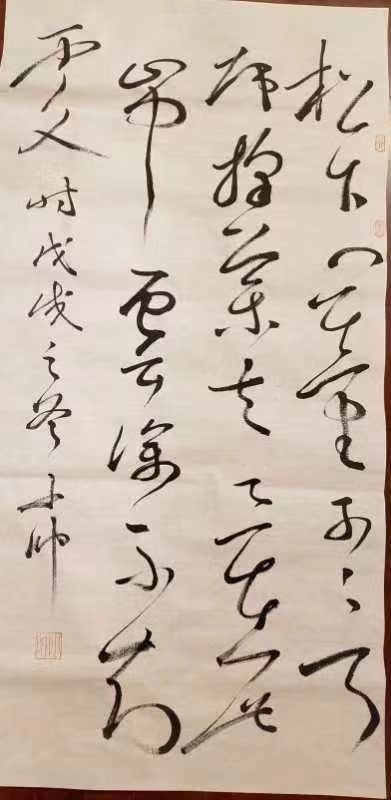 松下问童子言
师採薬去只在此
山中雲深不知
處 时戊戌之冬